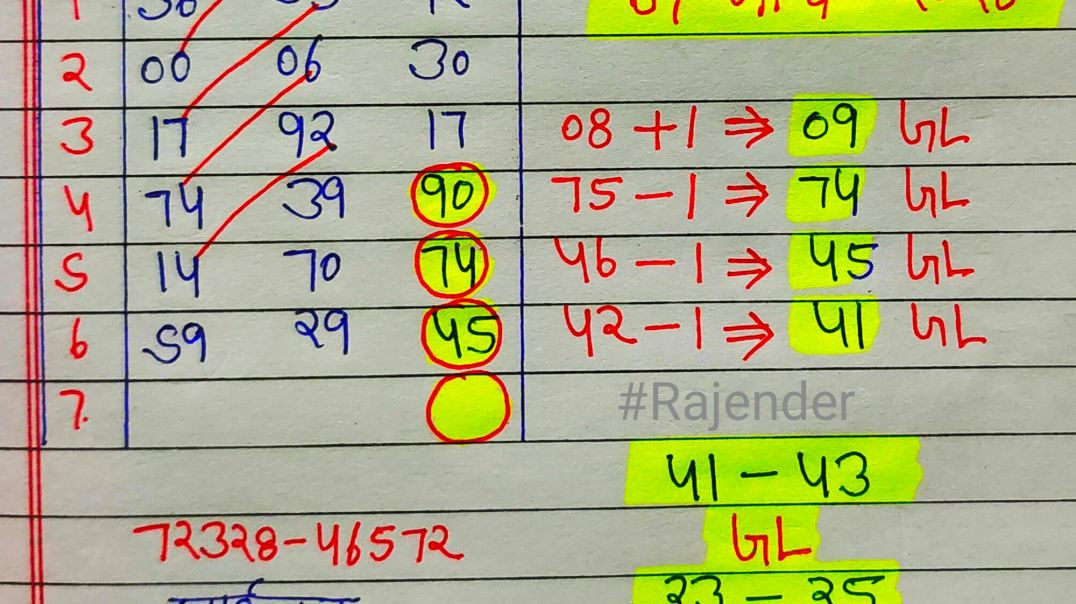 2 00 06 30
3 17 92 17 08 +1 ⇒ 09 GL
4 74 39 90 75 - 1 ⇒ 74 GL
5 14 70 74 46 - 1 ⇒ 45 GL
6 59 29 45 42 - 1 ⇒ 41 GL
7.
#Rajender
41 - 43
72328-46572 GL
23 - 25